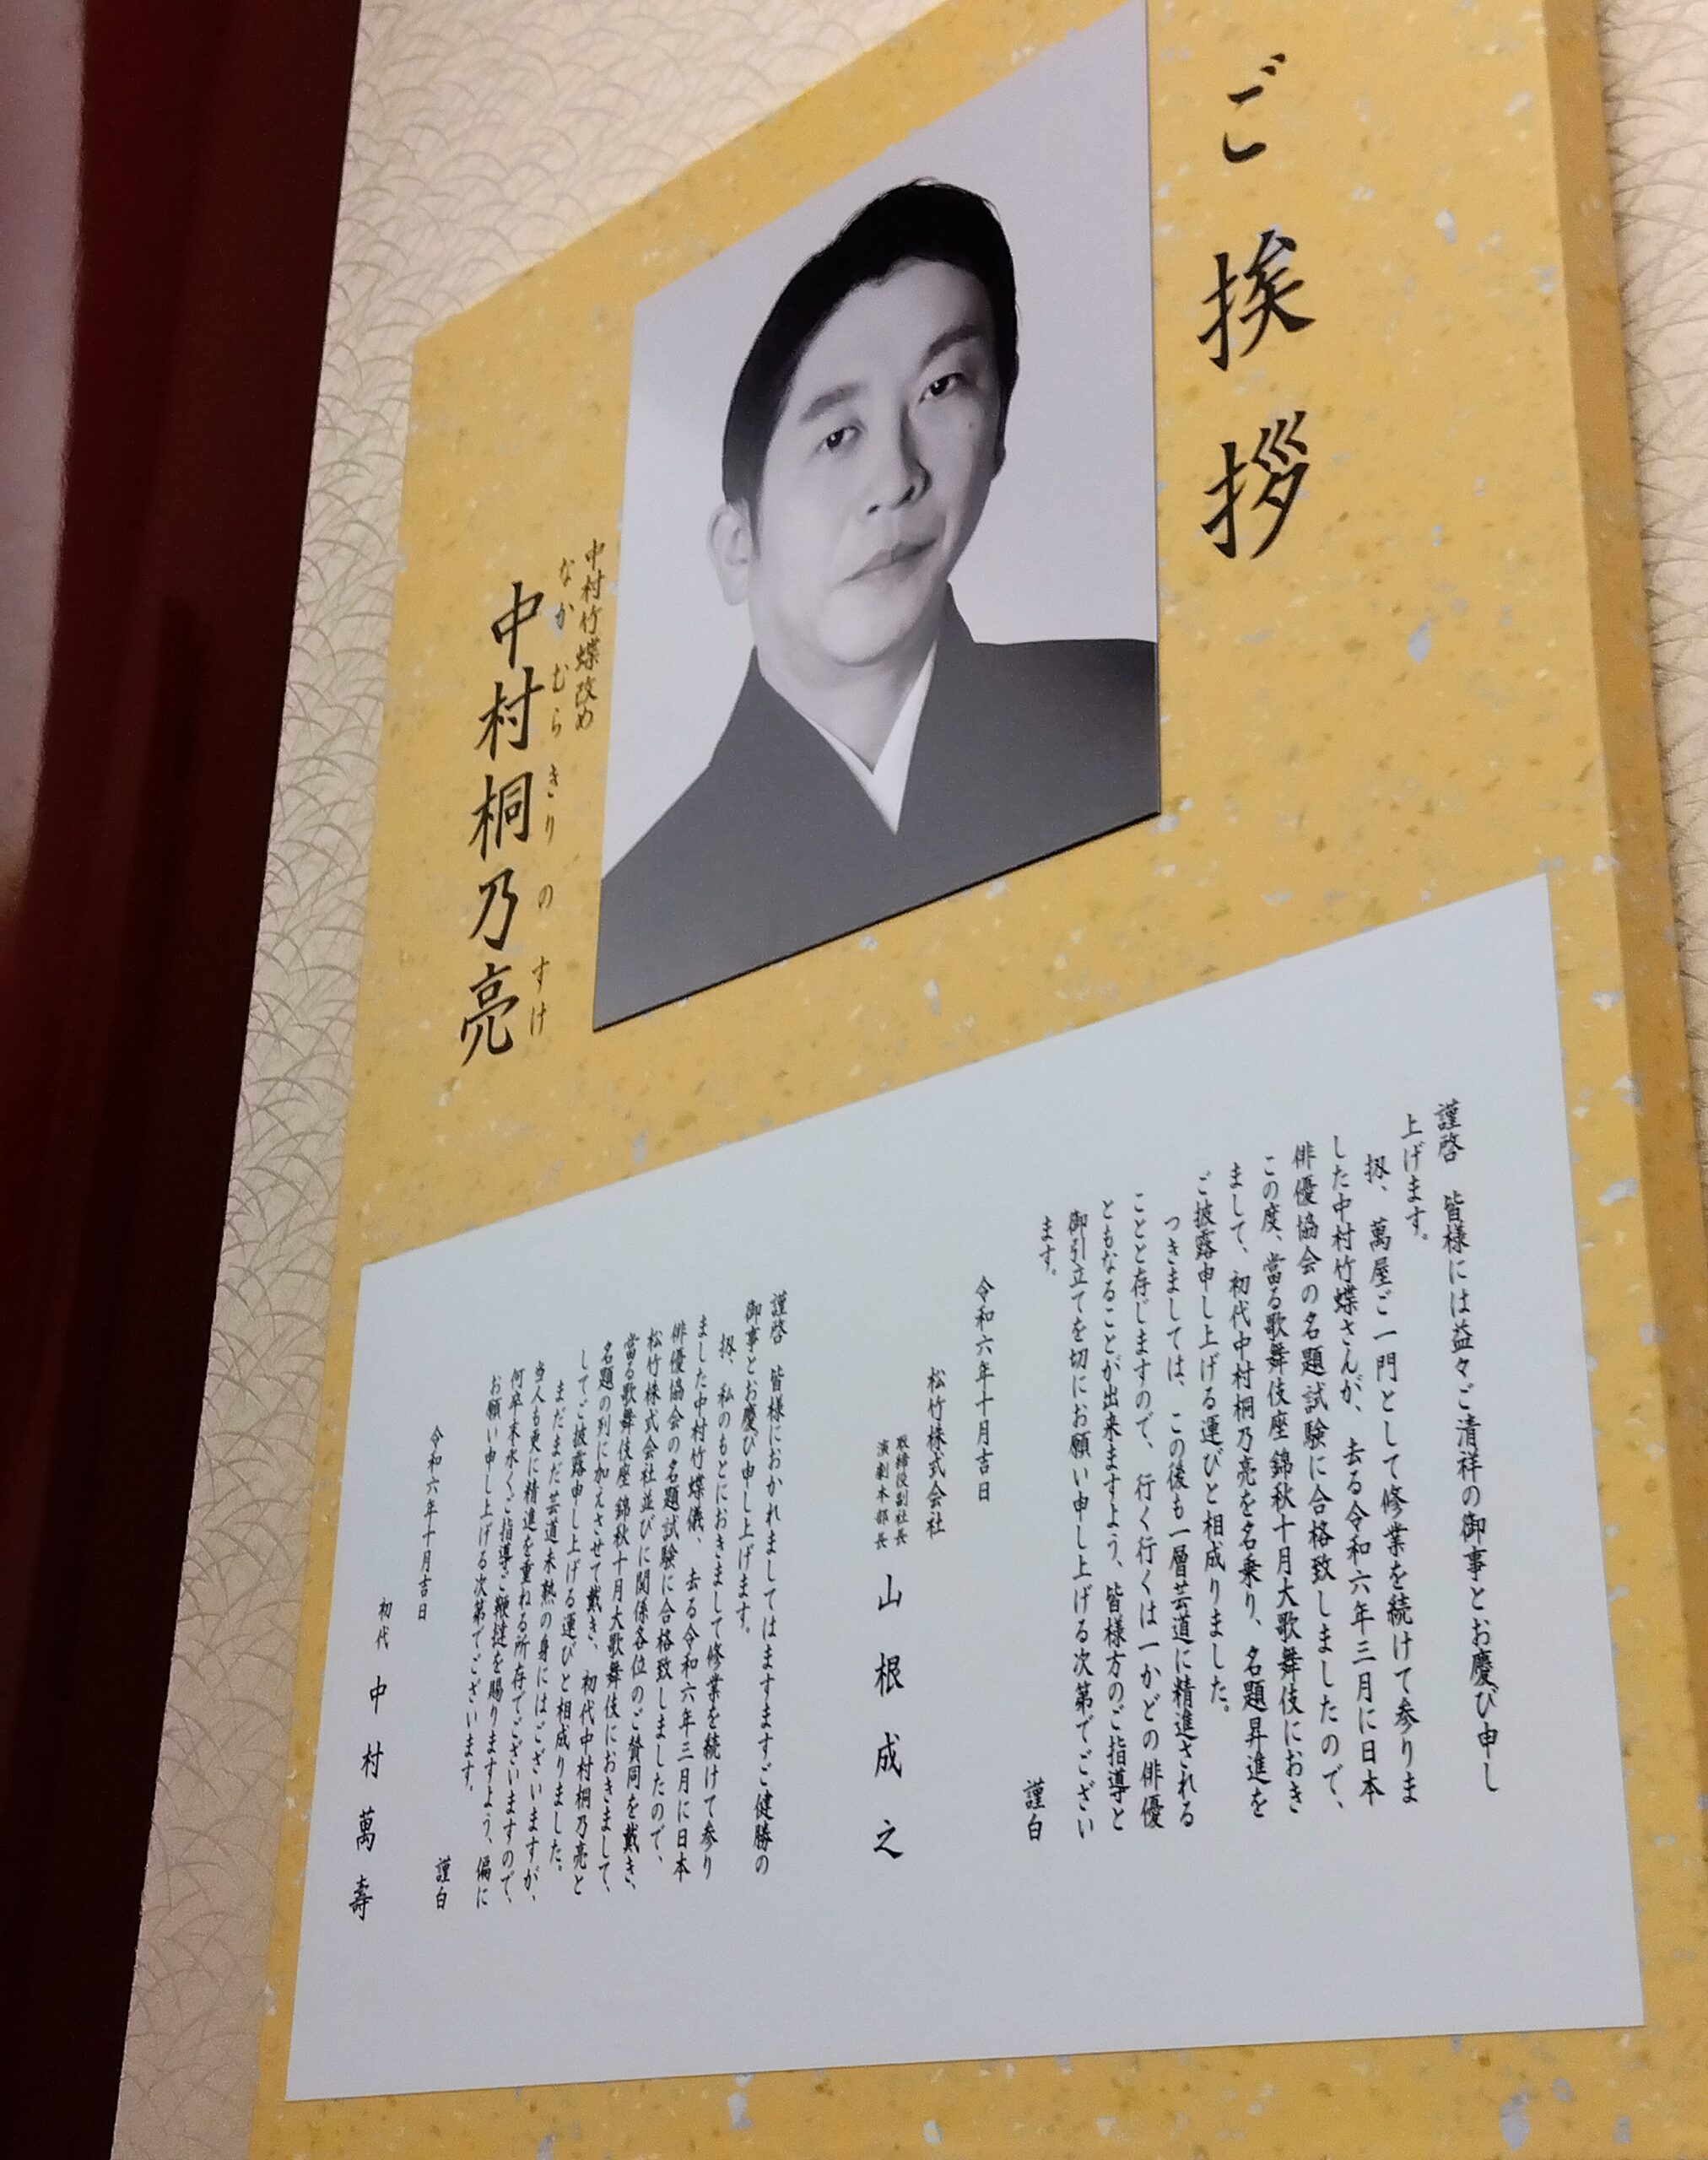 ご挨拶
中村竹蝶改め
なかむらきりのすけ
中村桐乃亮
謹啓　皆様には益々ご清祥の御事とお慶び申し
上げます。
扨、萬屋ご一門として修業を続けて参りま
した中村竹蝶さんが、去る令和六年三月に日本
俳優協会の名題試験に合格致しましたので、
この度、當る歌舞伎座 錦秋十月大歌舞伎におき
まして、初代中村桐乃亮を名乗り、名題昇進を
ご披露申し上げる運びと相成りました。
つきましては、この後も一層芸道に精進される
ことと存じますので、行く行くは一かどの俳優
ともなることが出来ますよう、皆様方のご指導と
御引立てを切にお願い申し上げる次第でござい
ます。
謹白
令和六年十月吉日
松竹株式会社
取締役副社長
演劇本部長
山根成之
謹啓　皆様におかれましてはますますご健勝の
御事とお慶び申し上げます。
扨、私のもとにおきまして修業を続けて参り
ました中村竹蝶儀、去る令和六年三月に日本
俳優協会の名題試験に合格致しましたので、
松竹株式会社並びに関係各位のご賛同を戴き、
當る歌舞伎座 錦秋十月大歌舞伎におきまして、
名題の列に加えさせて戴き、初代中村桐乃亮と
してご披露申し上げる運びと相成りました。
まだまだ芸道未熟の身にはございますが、
当人も更に精進を重ねる所存でございますので、
何卒末永くご指導ご鞭撻を賜りますよう、偏に
お願い申し上げる次第でございます。
謹白
令和六年十月吉日
初代 中村萬壽